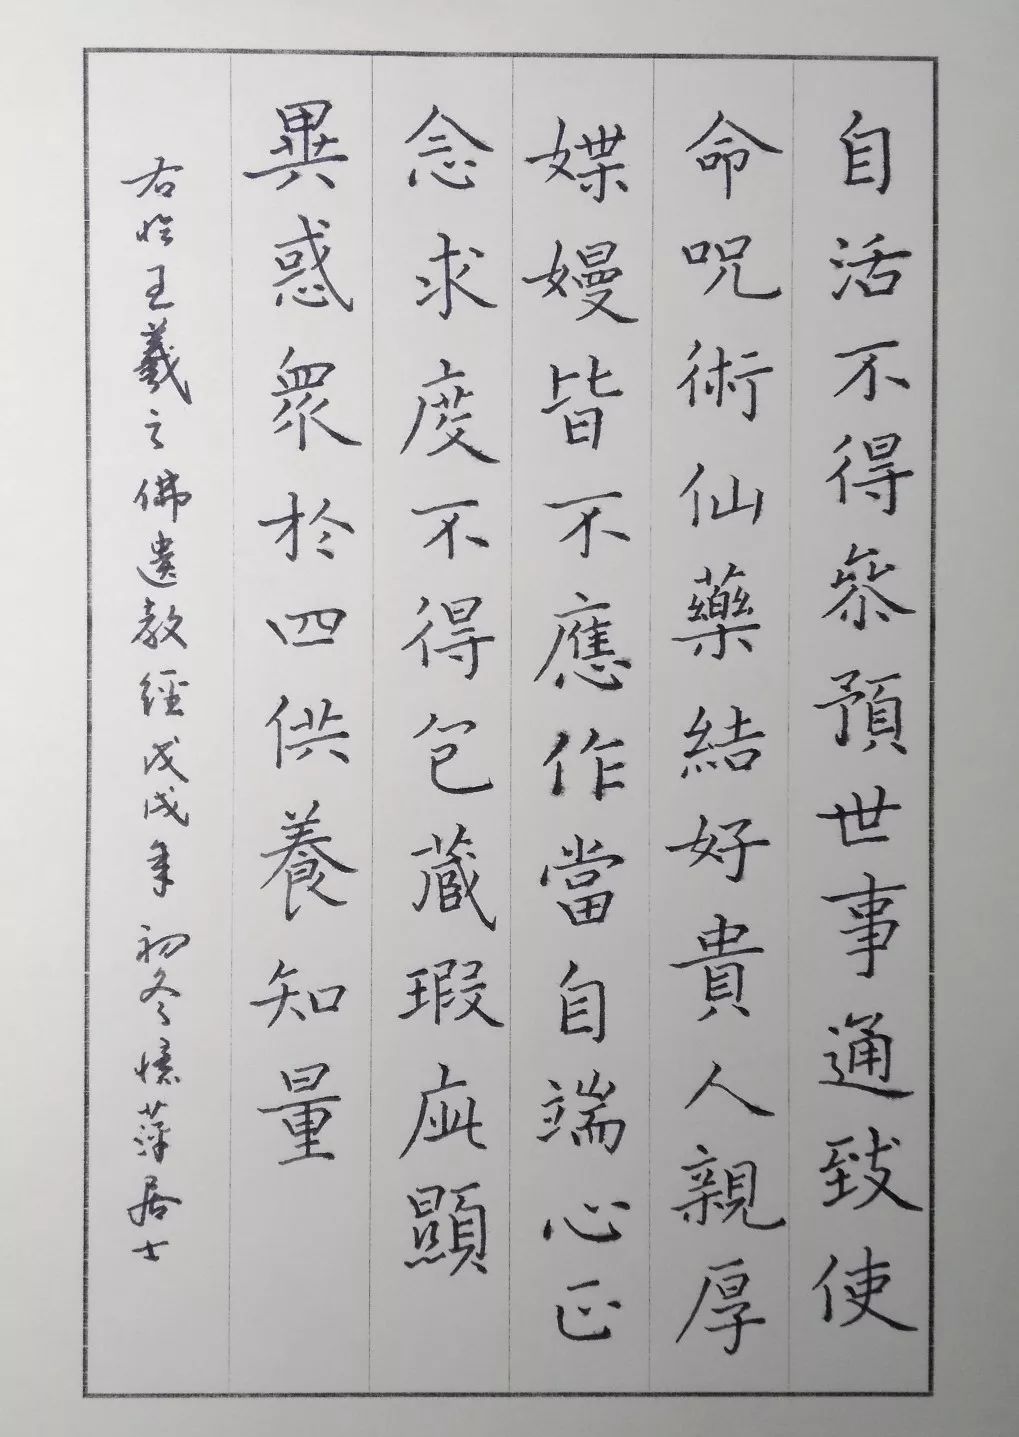 自活不得叅預世事通致使
命呪術仙藥結好貴人親厚
媟嫚皆不應作當自端心正
念求度不得包藏瑕疵顯
異惑眾於四供養知量
右臨王羲之佛遺教經戊戌年初冬憶萍居士